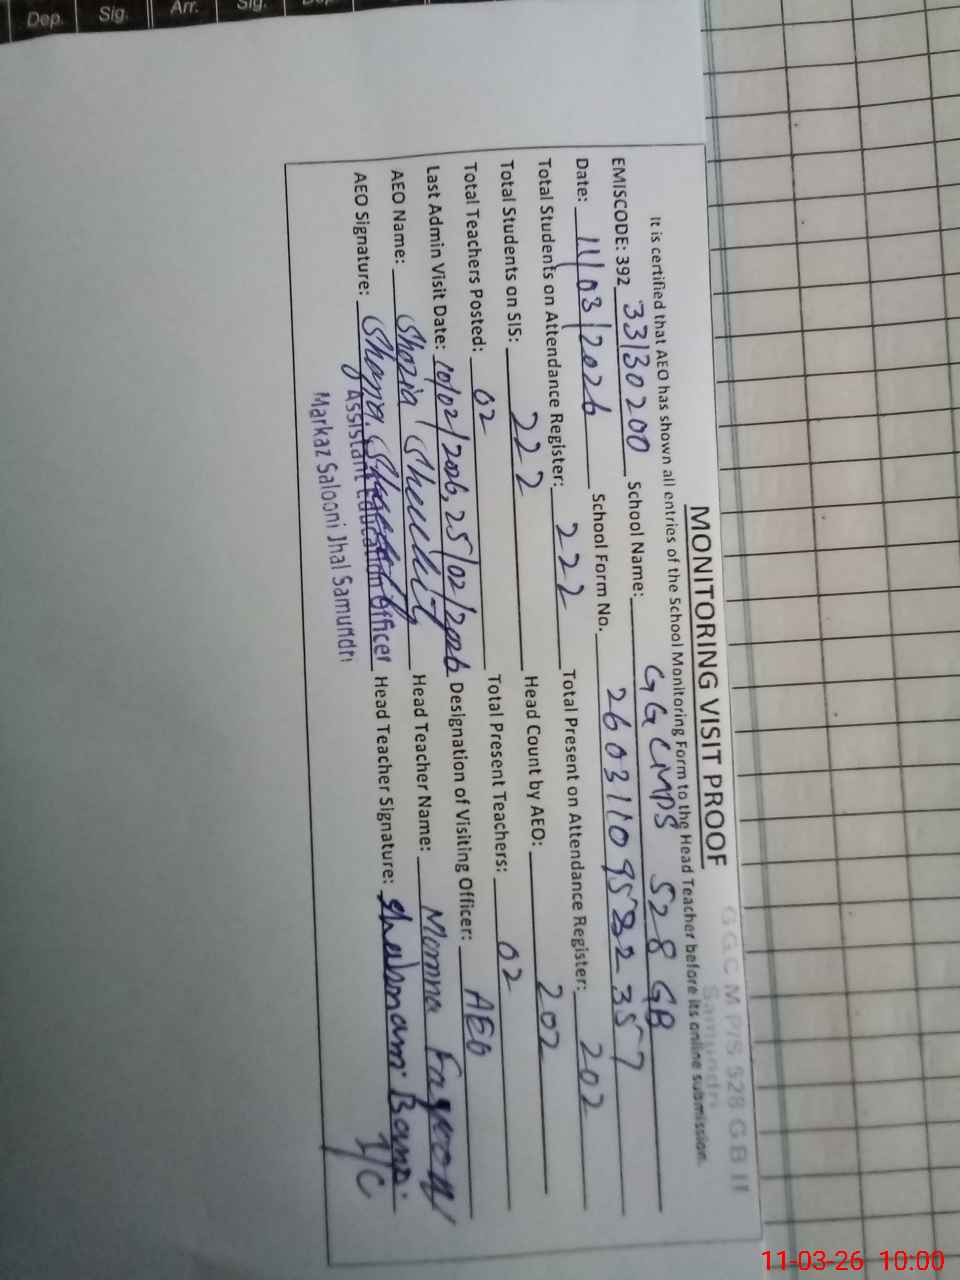 Dep. Sig. Arr. Sig.
GGCM P/S 528 GB II
Samundri
MONITORING VISIT PROOF
It is certified that AEO has shown all entries of the School Monitoring Form to the Head Teacher before its online submission.
EMISCODE: 392 33130200 School Name: GGCMPS 528 GB
Date: 11/03/2026 School Form No. 2603110958 2357
Total Students on Attendance Register: 222 Total Present on Attendance Register: 202
Total Students on SIS: 222 Head Count by AEO: 202
Total Teachers Posted: 02 Total Present Teachers: 02
Last Admin Visit Date: 10/02/2026, 25/02/2026 Designation of Visiting Officer: AEO
AEO Name: Shozia Head Teacher Name: Momna
AEO Signature: Head Teacher Signature: Shabnam Bano
I/C
Assistant Education Officer
Markaz Salooni Jhal Samundri
11-03-26 10:00